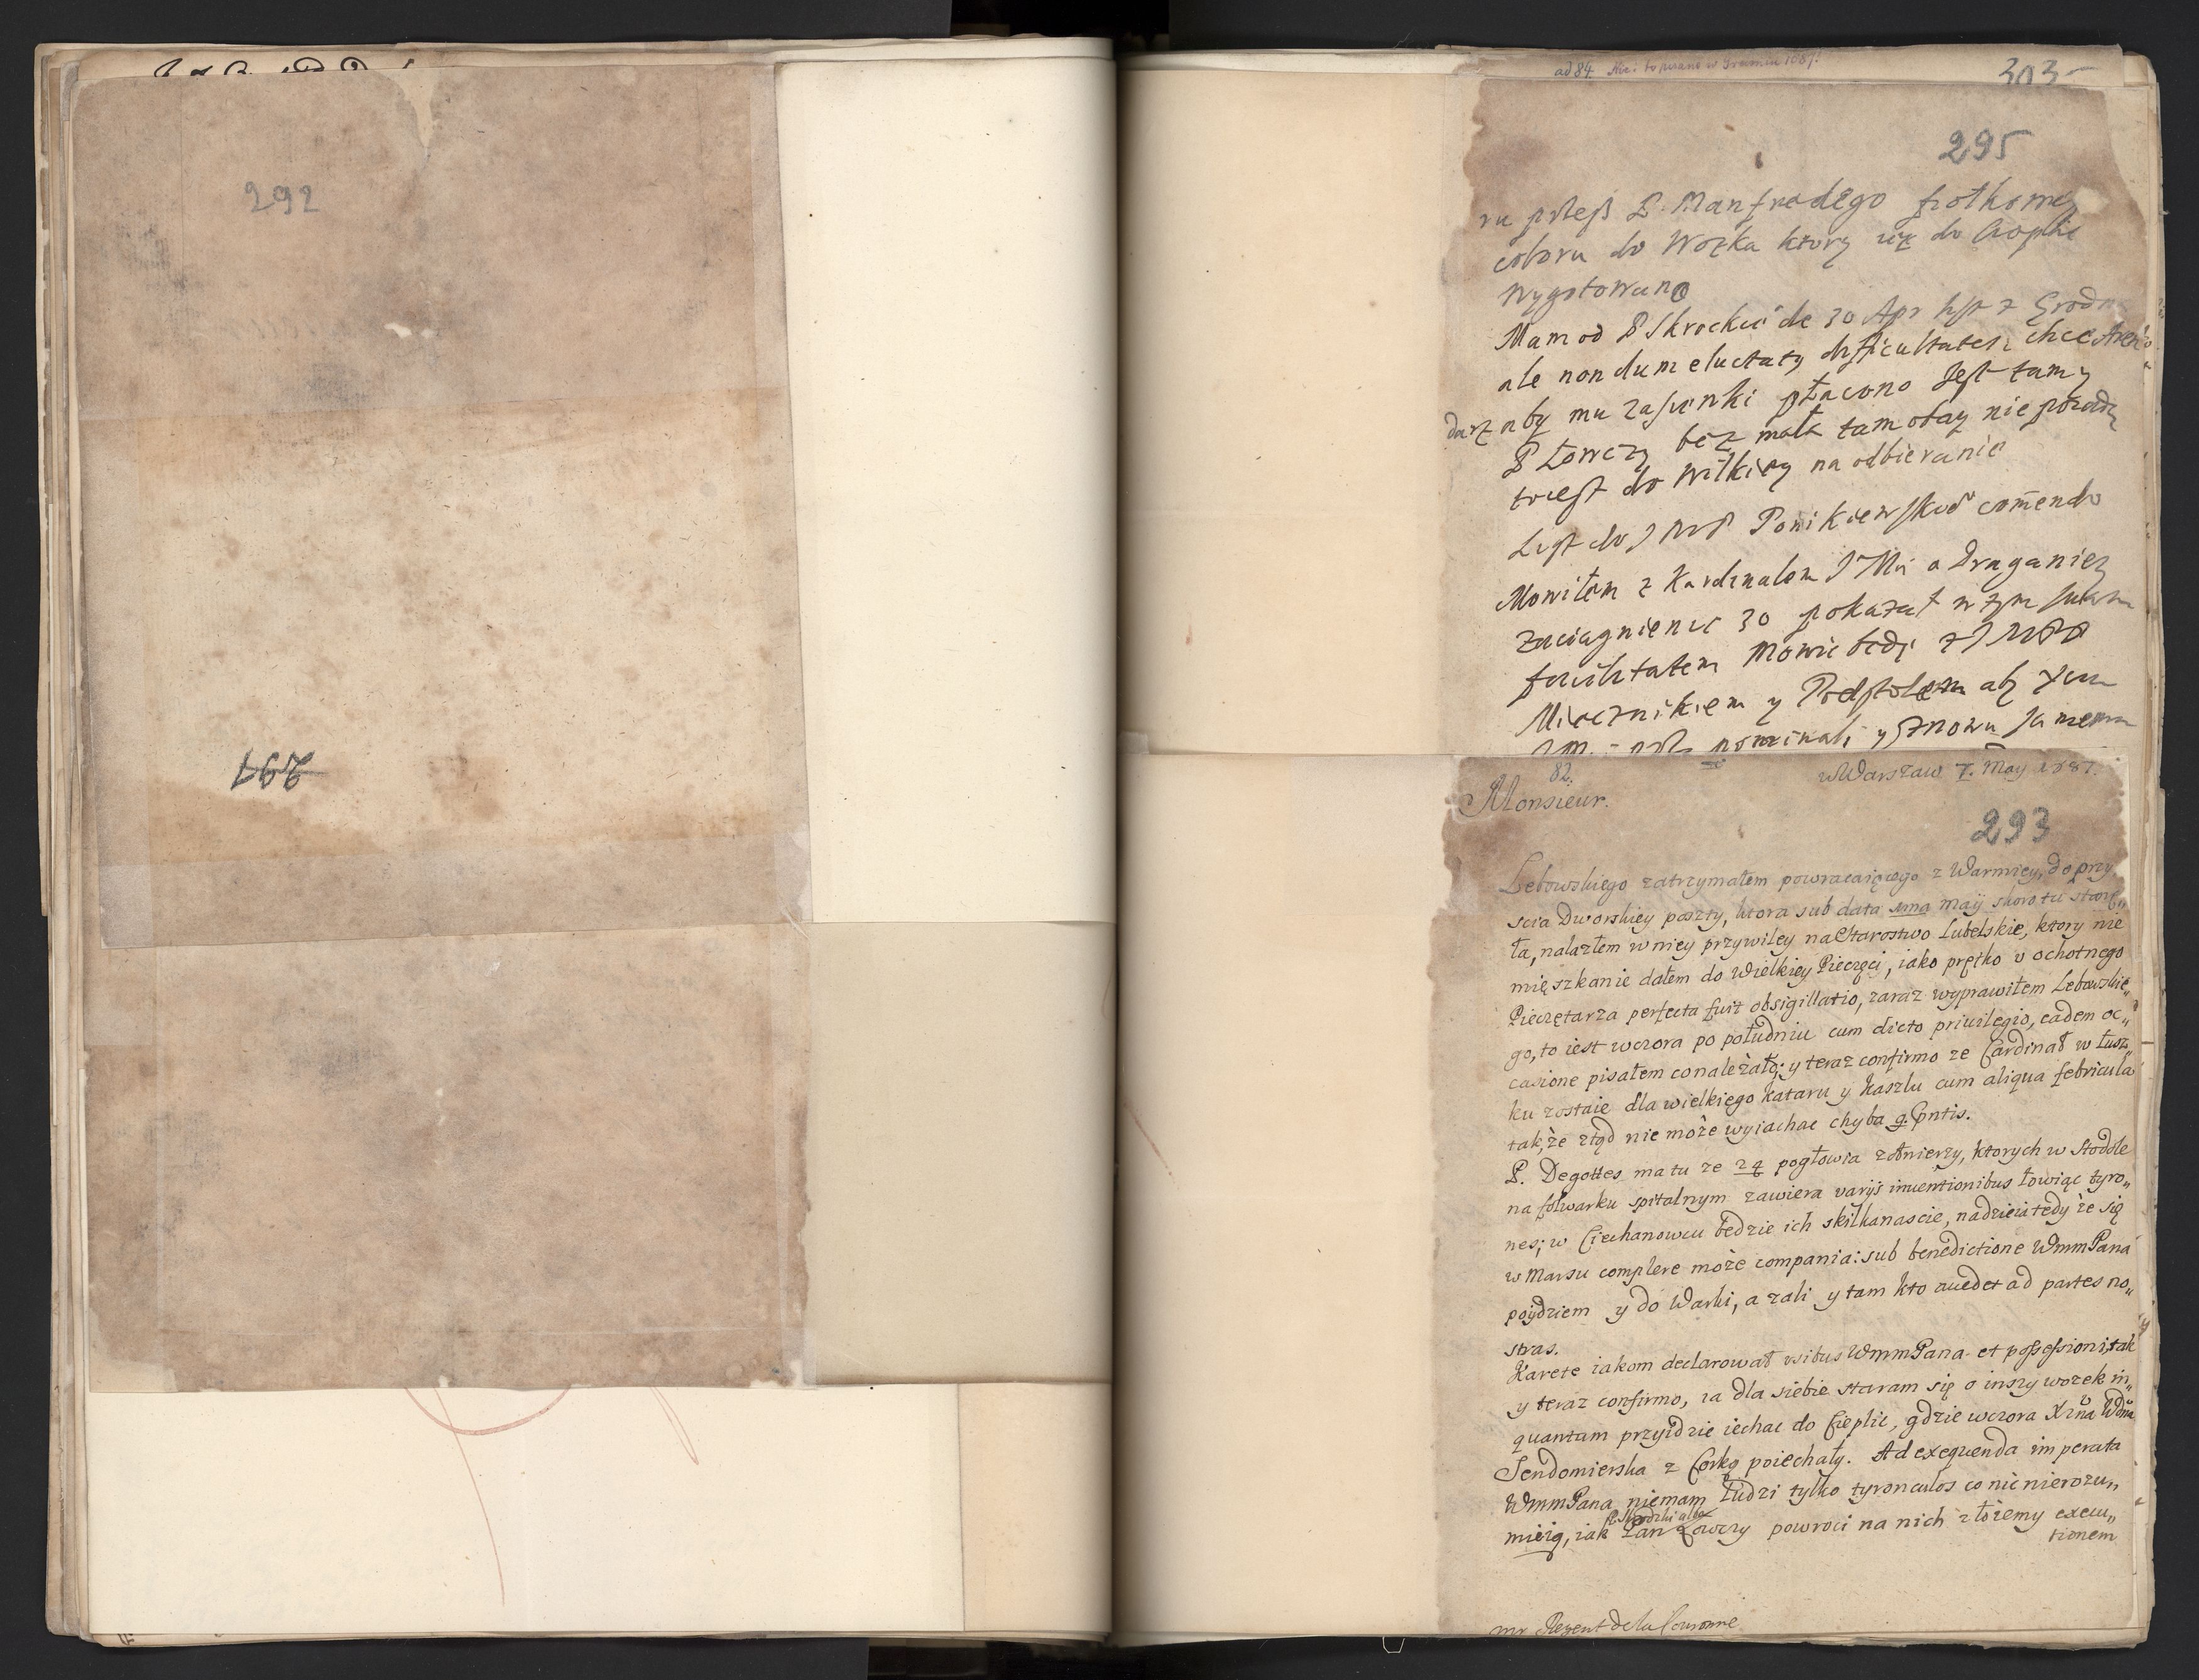 292
291
ad 84.
303
295
ru przeß P. Manfredego
coloru do Wozka ktory się do Cieplic
wygotowano
Mam od P Skrockie de 30 Apr list z Grodna
ale nondum eluctaty difficultates, chce
aby mu zasłonki płacono Jest tam y
P Łowczy bez mała tam obay nie poradzą
to iest do Wilkiey na odbieranie
List do JMP Ponikiewskie comendo
Mowiłem z Kardinałem J Mci o Draganiey
zaciągnieniu 30 pokazał w tym suam
facilitatem Mowic będę z JMPP
Miecznikiem y Podstolem aby
nominali y znowu
82.
w Warszaw 7. May 1687.
Monsieur.
293
Lebowskiego zatrzymałem powracaiącego z Warmiey, do przy
scia Dworskiey poczty, ktora sub data 1ma maÿ skoro tu stanę„
ła, nalazłem w niey przywiley na Starostwo Lubelskie, ktory nie
mięszkanie dałem do Wielkiey Pieczęci, iako prętko v ochotnego
Pieczętarza perfecta fuit obsigillatio, zaraz wyprawiłem Lebowskie„
go, to iest wczora po południu cum dicto priuilegio, eadem oc„
casione pisałem co należało; y teraz confirmo ze Cardinał w Łusz„
ku zostaie dla wielkiego kataru y kaszlu cum aliqua febricula
tak, że ztąd nie może wyiachac chyba 9. Pntis.
P. Degottes ma tu ze 24 pogłowia żołnierzy, ktorych w Stodole
na folwarku spitalnym zawiera varÿs inuentionibus łowiąc tyro„
nes; w Ciechanowcu będzie ich kilkanascie, nadzieia tedy że się
w Marsu complere może compania: sub benedictione WmmPana
poÿdziem y do Warki, a zali y tam kto accedet ad partes no„
stras.
Karete iakom declarował vsibus WmmPana et possessioni, tak
y teraz confirmo, ia dla siebie staram się o inszy wozek in„
quantum przyidzie iechac do Cieplic, gdzie wczora Xżna Wdna
Sendomierska z Corką poiechały. Ad exequenda imperata
WmmPana niemam Ludzi tylko tyronculos co nic nierozu„
P. Skrodzki albo
mieią, iak Pan Łowczy powroci na nich złożemy execu„
tionem
mr Regent de la Couronne